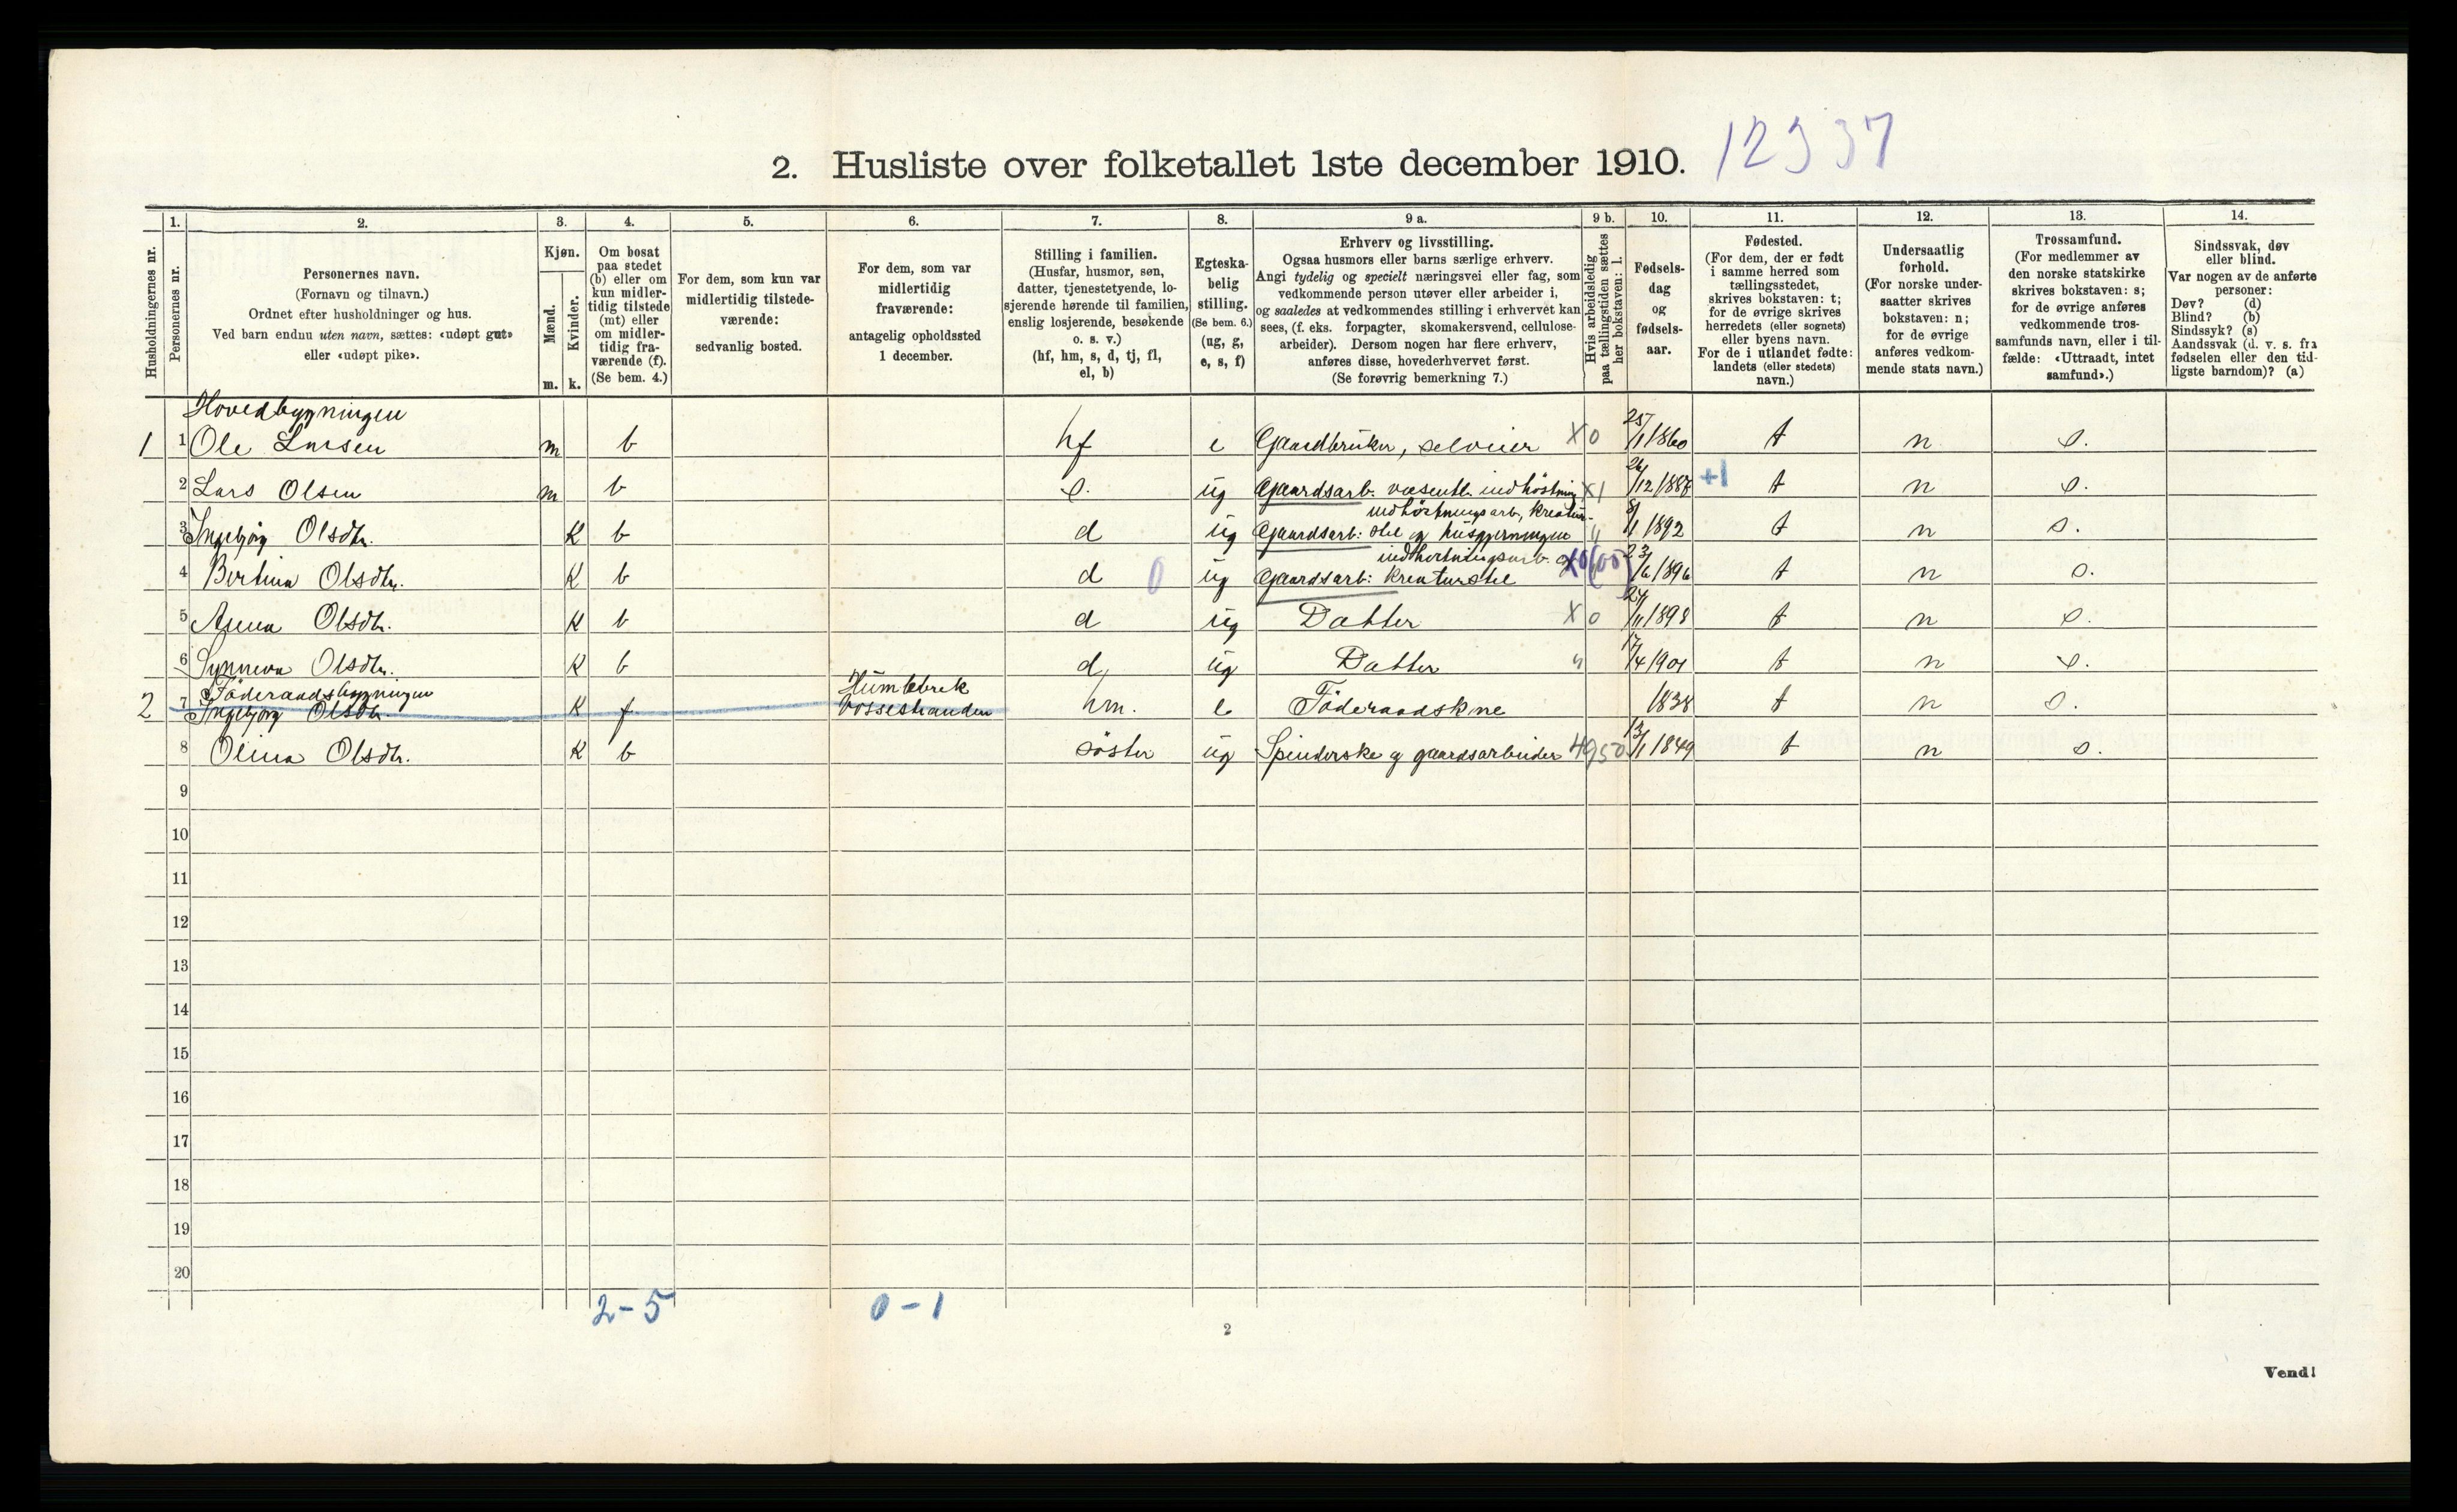 2. Husliste over folketallet 1ste december 1910. 12337
1. 2. 3. 4. 5. 6. 7. 8. 9 a. 9 b. 10. 11. 12. 13. 14.
Husholdningernes nr.
Personernes nr.
Personernes navn.
(Fornavn og tilnavn.)
Ordnet efter husholdninger og hus.
Ved barn endnu uten navn, sættes: «udøpt gut»
eller «udøpt pike».
Kjøn.
Mænd.
Kvinder.
m. k.
Om bosat
paa stedet
(b) eller om
kun midler-
tidig tilstede
(mt) eller
om midler-
tidig fra-
værende (f).
(Se bem. 4.)
For dem, som kun var
midlertidig tilstede-
værende:
sedvanlig bosted.
For dem, som var
midlertidig
fraværende:
antagelig opholdssted
1 december.
Stilling i familien.
(Husfar, husmor, søn,
datter, tjenestetyende, lo-
sjerende hørende til familien,
enslig losjerende, besøkende
o. s. v.)
(hf, hm, s, d, tj, fl,
el, b)
Egteska-
belig
stilling.
(Se bem. 6.)
(ug, g,
e, s, f)
Erhverv og livsstilling.
Ogsaa husmors eller barns særlige erhverv.
Angi tydelig og specielt næringsvei eller fag, som
vedkommende person utøver eller arbeider i,
og saaledes at vedkommendes stilling i erhvervet kan
sees, (f. eks. forpagter, skomakersvend, cellulose-
arbeider). Dersom nogen har flere erhverv,
anføres disse, hovederhvervet først.
(Se forøvrig bemerkning 7.)
Hvis arbeidsledig
paa tællingstiden sættes
her bokstaven: l.
Fødsels-
dag
og
fødsels-
aar.
Fødested.
(For dem, der er født
i samme herred som
tællingsstedet,
skrives bokstaven: t;
for de øvrige skrives
herredets (eller sognets)
eller byens navn.
For de i utlandet fødte:
landets (eller stedets)
navn.)
Undersaatlig
forhold.
(For norske under-
saatter skrives
bokstaven: n;
for de øvrige
anføres vedkom-
mende stats navn.)
Trossamfund.
(For medlemmer av
den norske statskirke
skrives bokstaven: s;
for de øvrige anføres
vedkommende tros-
samfunds navn, eller i til-
fælde: «Uttraadt, intet
samfund».)
Sindssvak, døv
eller blind.
Var nogen av de anførte
personer:
Døv? (d)
Blind? (b)
Sindssyk? (s)
Aandssvak (d. v. s. fra
fødselen eller den tid-
ligste barndom)? (a)
Hovedbygningen
1 1 Ole Larsen m b hf e Gaardbruker, selveier X 0 25/1 1860 t n s.
2 Lars Olsen m b s. ug Gaardsarb. væsentl. indhöstning X 1 /12 188 +1 t n s.
indhöstningsarb, kreatur-
3 Ingebjörg Olsdtr. K b d ug Gaardsarb: stel og husgjerningen " 8/1 1892 t n s.
indhöstningsarb. og
4 Bertina Olsdtr. K b d 0 ug Gaardsarb: Kreaturstel X 0 23/6 1896 t n s.
5 Anna Olsdtr. K b d ug Datter X 0 24/11 1898 t n s.
6 Synneva Olsdtr. K b d, ug Datter " 17/4 1901 t n s.
Föderaadsbygningen Humlebrek
2 7 Ingebjörg Olsdtr. K f Vossestranden hm. e Föderaadskne 1838 t n s.
8 Olina Olsdtr. K b söster ug Spinderske og gaardsarbeider 4950 13/1 1849 t n s.
9
10
11
12
13
14
15
16
17
18
19
20
2-5 0-1
2
Vend!